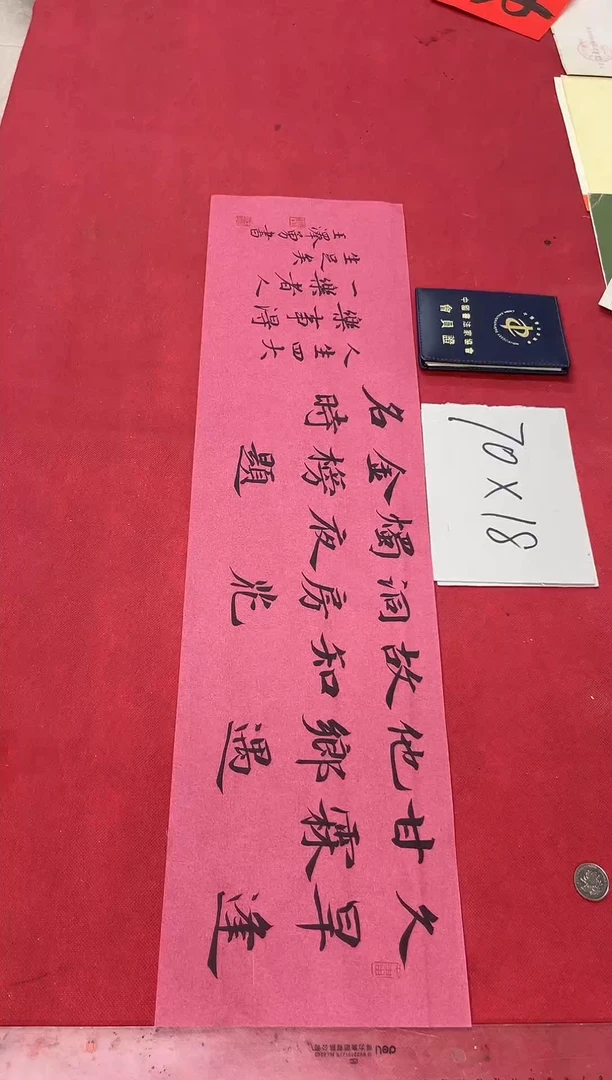 久旱逢
甘霖
他鄉遇
故知
洞房花
燭夜
金榜題
名時
人生四大
樂事得
一樂者人
生足矣
王澤勇書
中國書法家協會
會員證
70X18
deli